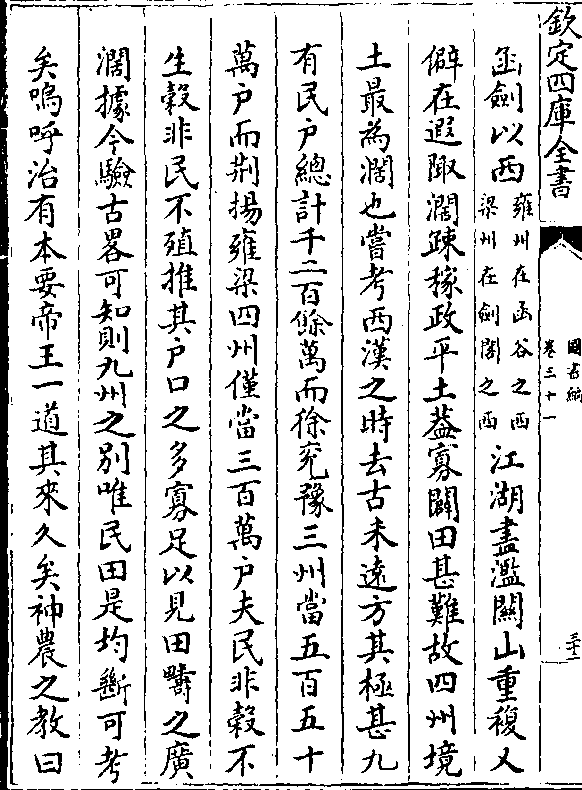 欽定四庫全書
圖書編
卷三十一
函劍以西
雍州在函谷之西
梁州在劍閣之西
江湖盡濫關山重複又
僻在遐陬濶踈稼政平土葢寡闢田甚難故四州境
土最為濶也嘗考西漢之時去古未遠方其極甚九
有民戶總計千二百餘萬而徐兖豫三州當五百五十
萬戶而荆揚雍梁四州僅當三百萬戶夫民非榖不
生榖非民不殖推其戶口之多寡足以見田疇之廣
濶據今驗古畧可知則九州之別唯民田是均斷可考
矣嗚呼治有本要帝王一道其來久矣神農之教曰